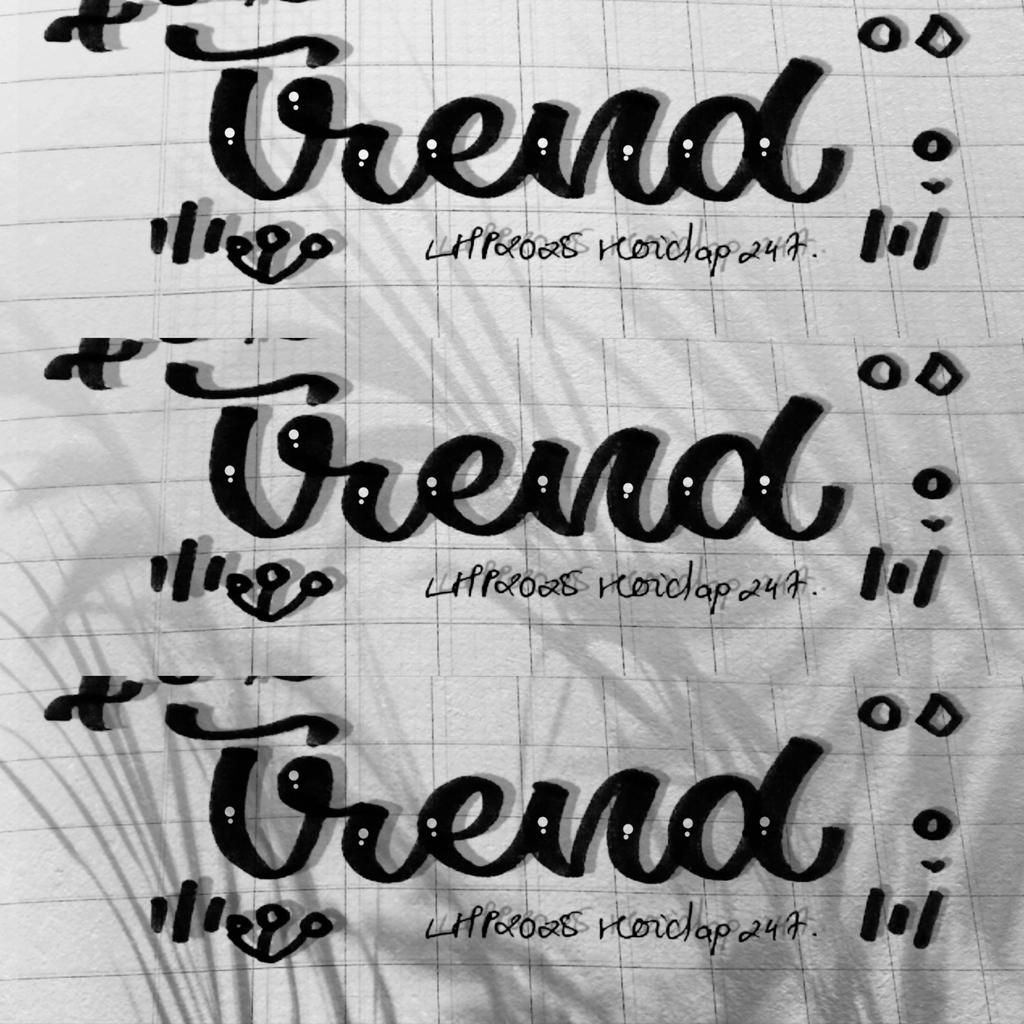 Trend
LHP2025 Hoidap247.
Trend
LHP2025 Hoidap247.
Trend
LHP2025 Hoidap247.